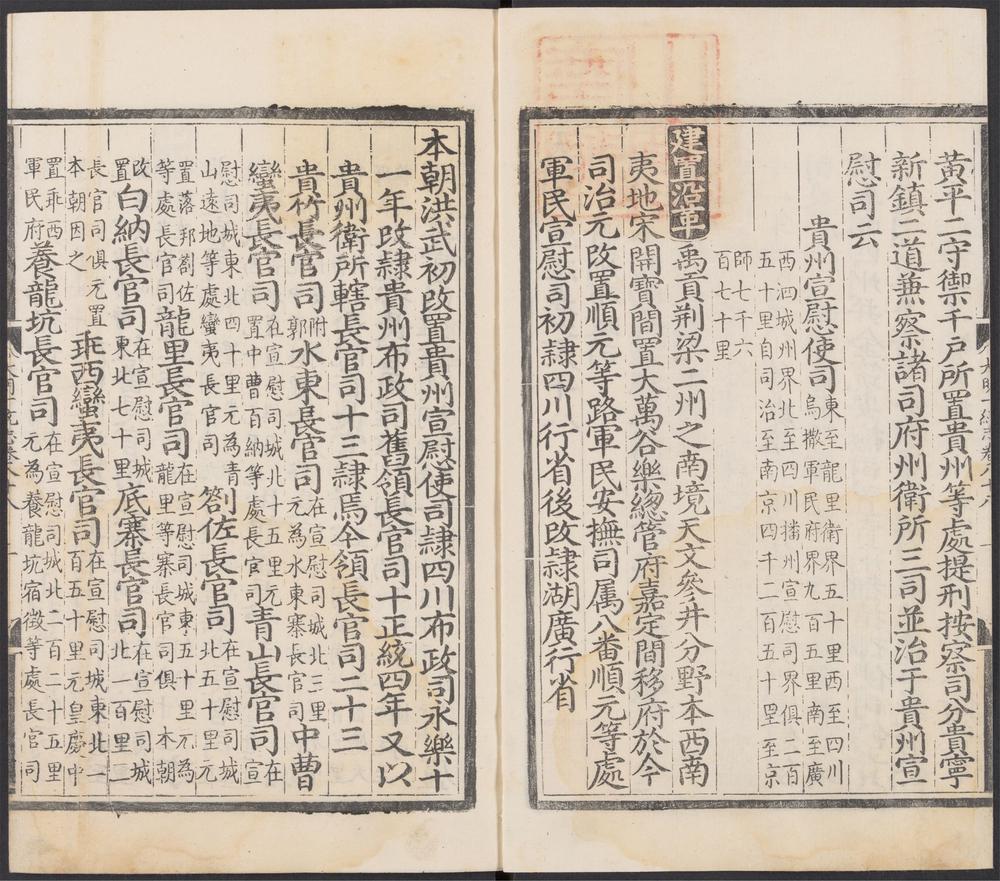 黃平二守禦千戶所置貴州等處提刑按察司分貴寧
新鎮二道兼察諸司府州衛所三司並治于貴州宣
慰司云
貴州宣慰使司
東至龍里衛界五十里西至四川
烏撒軍民府界九百五里南至廣
西泗城州界北至四川播州宣慰司界俱二百
五十里自司治至南京四千二百五十里至京
師七千六
百七十里
建置沿革
禹貢荊梁二州之南境天文參井分野本西南
夷地宋開寶間置大萬谷樂總管府嘉定間移府於今
司治元改置順元等路軍民安撫司属八番順元等處
軍民宣慰司初隷四川行省後改隷湖廣行省
本朝洪武初改置貴州宣慰使司隷四川布政司永樂十
一年改隷貴州布政司舊領長官司十正統四年又以
貴州衛所轄長官司十三隷焉今領長官司二十三
貴竹長官司
附
郭
水東長官司
在宣慰司城北三里
元為水東寨長官司
中曹
蠻夷長官司
在宣慰司城北十五里元
置中曹百納等處長官司
青山長官司
在
宣
慰司城東北四十里元為青
山遠地等處蠻夷長官司
劄佐長官司
在宣慰司城
北五十里元
置落邦劄佐
等處長官司
龍里長官司
在宣慰司城東五十里元為
龍里等寨長官司俱本朝
改
置
白納長官司
在宣慰司城
東北七十里
底寨長官司
在宣慰司城
北一百里二
長官司俱元置
本朝因之
乖西蠻夷長官司
在宣慰司城東北一
百五十里元皇慶中
置乖西
軍民府
養龍坑長官司
在宣慰司城北二百二十五里
元為養龍坑宿徵等處長官司